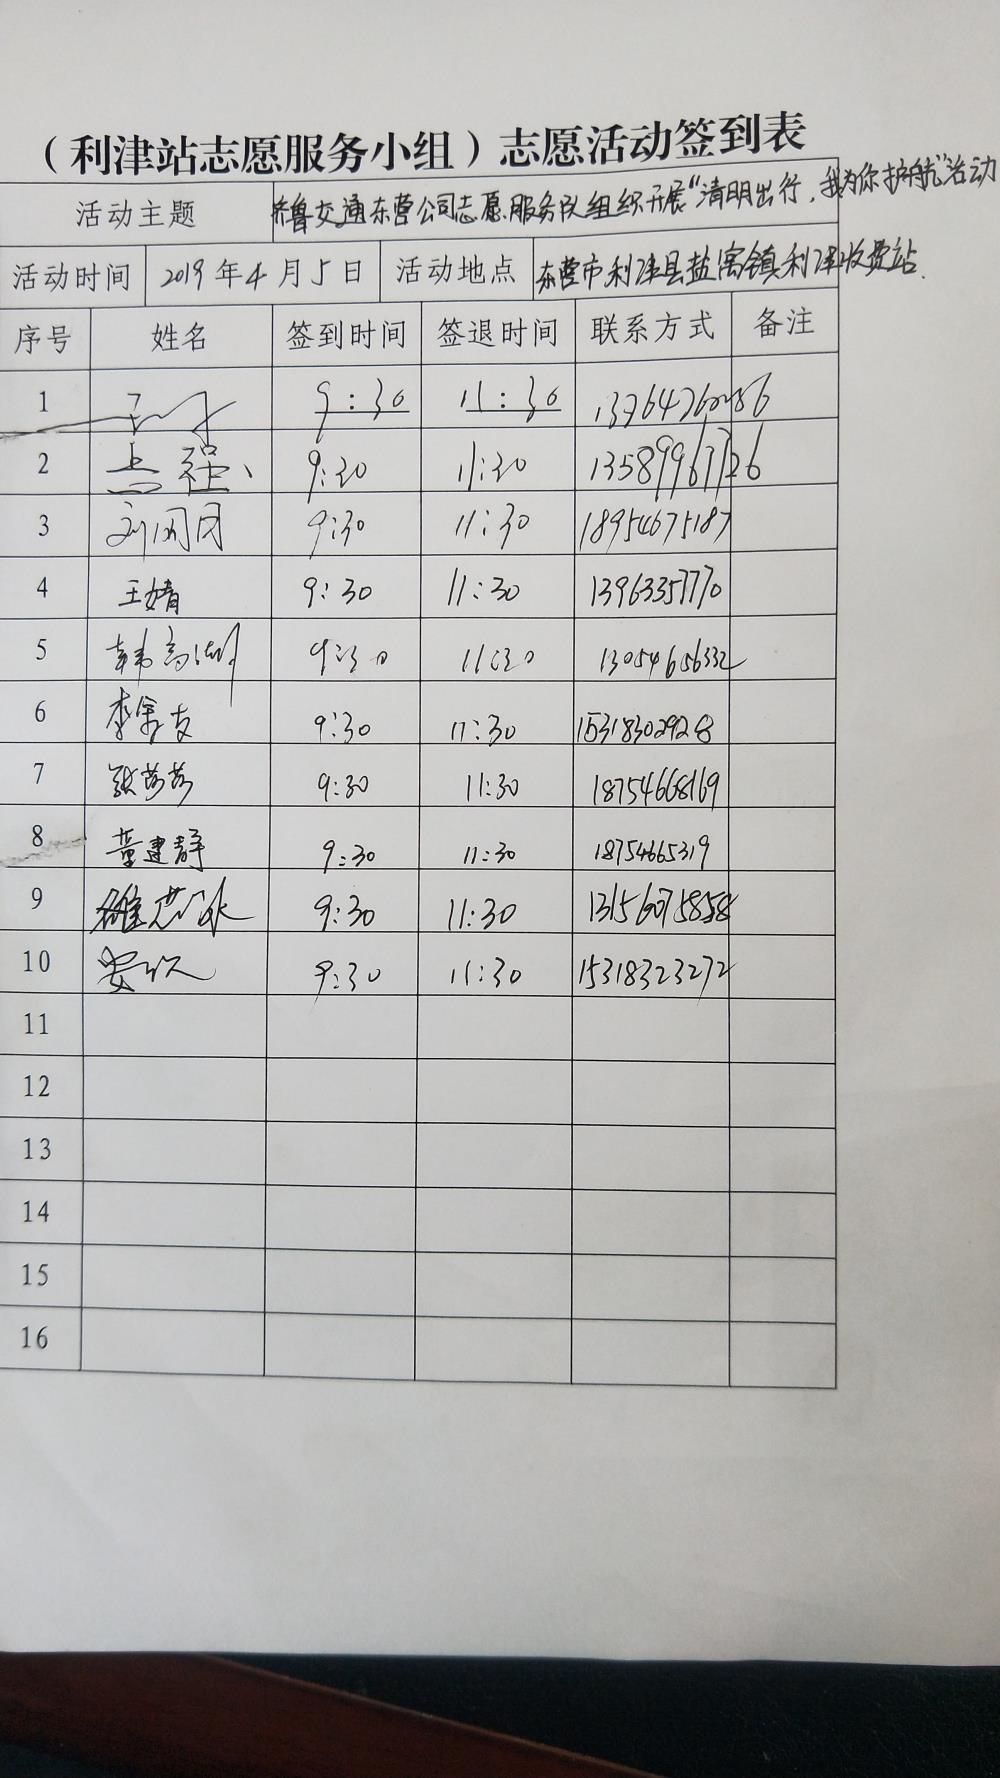 （利津站志愿服务小组）志愿活动签到表
活动主题 齐鲁交通东营公司志愿服务队组织开展“清明出行，我为你护航”活动
活动时间 2019年4月5日 活动地点 东营市利津县盐窝镇利津收费站.
序号 姓名 签到时间 签退时间 联系方式 备注
1 9:30 11:30
2 9:30 11:30 13589967726
3 9:30 11:30 18954675187
4 王婧 9:30 11:30 13963357770
5 9:30 11:30 13054656332
6 9:30 11:30 15318302928
7 张莎莎 9:30 11:30 18754668169
8 董建静 9:30 11:30 18754665319
9 9:30 11:30 13156075858
10 9:30 11:30 15318323272
11
12
13
14
15
16